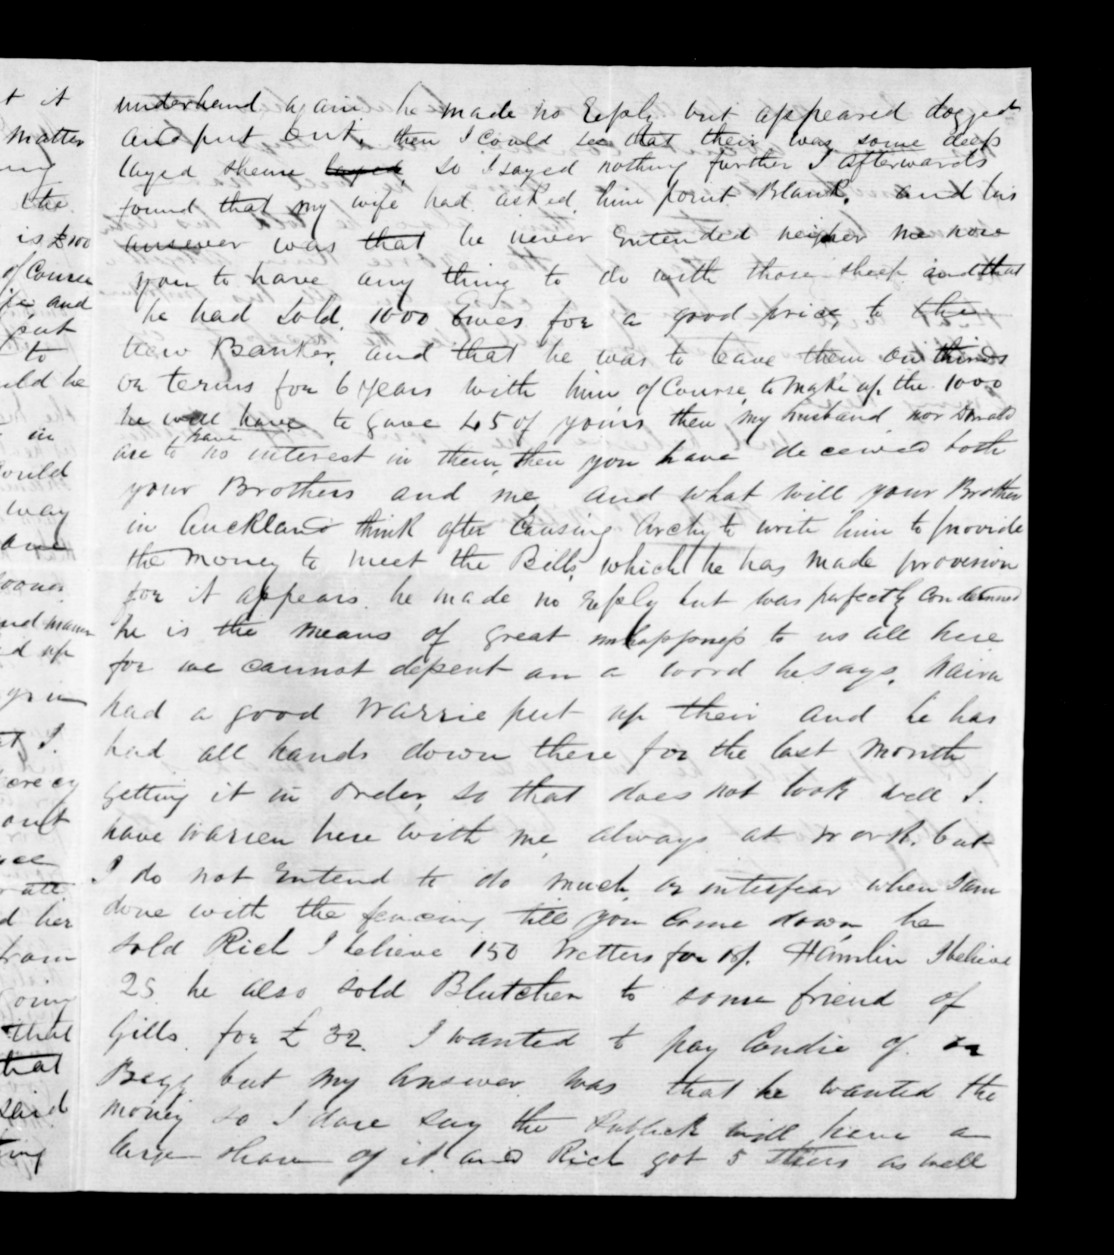 underhand again he made no Reply but appeared dogged
and put out, then I could see that their was some deep
layed sheme layed so I sayed nothing further I afterwards
found that my wife had asked him point Blank, and his
answer was that he never Entended neigher me nore
you to have any thing to do with those sheep and that
he had Sold 1000 Ewes for a good price to the
New Banker, and that he was to leave them on thirds
on terms for 6 years with him of Course to make up the 1000
he will have to gave 45 of yours then my husband nor Donald
are to have no interest in them, then you have deceived both
your Brothers and me and what will your Brother
in Auckland think after Causing Archy to write him to provide
the money to meet the Bills which he has made provision
for it appears he made no reply but was perfectly Condemned
he is the means of great unhappyness to us all here
for we cannot depent on a word he says.
had a good Warrie put up their and he has
had all hands down there for the last month
getting it in order, so that does not look well I
have Warren here with me always at work but
I do not Entend to do much or interfear when I am
done with the fencing till you Come down, he
sold Rich I believe 150 Wetters for Hamlin I believe
25 he also sold Blutcher to some friend of
Gills for £32 I wanted to pay Condie of or
Begg but my answer was that he wanted the
money so I dare say the Publick will have a
large share of it and Rich got 5 as well
t it
matter
the
is £100
of Course
and
put
to
he
in
way
that
that
said